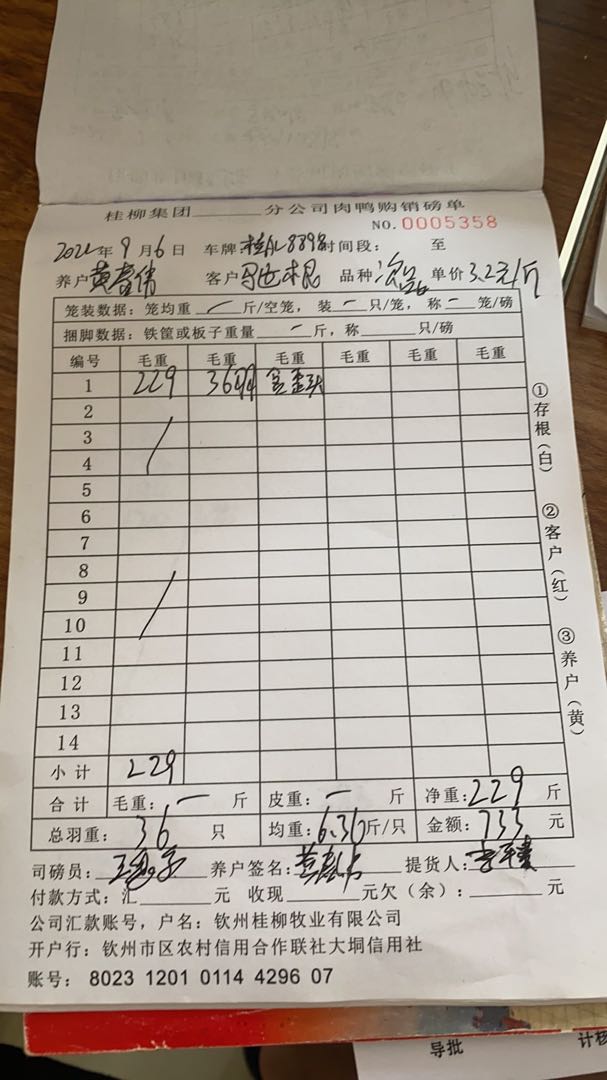 桂柳集团______分公司肉鸭购销磅单
NO. 0005358
9月6日 车牌: 8898 时间段: 至
养户 客户 品种 次品 单价 3.2元/斤
笼装数据: 笼均重 — 斤/空笼, 装 — 只/笼, 称 — 笼/磅
捆脚数据: 铁筐或板子重量 — 斤, 称______只/磅
编号 毛重 毛重 毛重 毛重 毛重 毛重
1 229 36羽
2
3
4
5
6
7
8
9
10
11
12
13
14
小计 229
合计 毛重: — 斤 皮重: — 斤 净重: 229 斤
总羽重: 36 只 均重: 6.36 斤/只 金额: 733 元
司磅员: 养户签名: 提货人:
付款方式: 汇______元 收现______元欠(余): ______元
公司汇款账号, 户名: 钦州桂柳牧业有限公司
开户行: 钦州市区农村信用合作联社大垌信用社
账号: 8023 1201 0114 4296 07
①存根(白)
②客户(红)
③养户(黄)
导批
计核